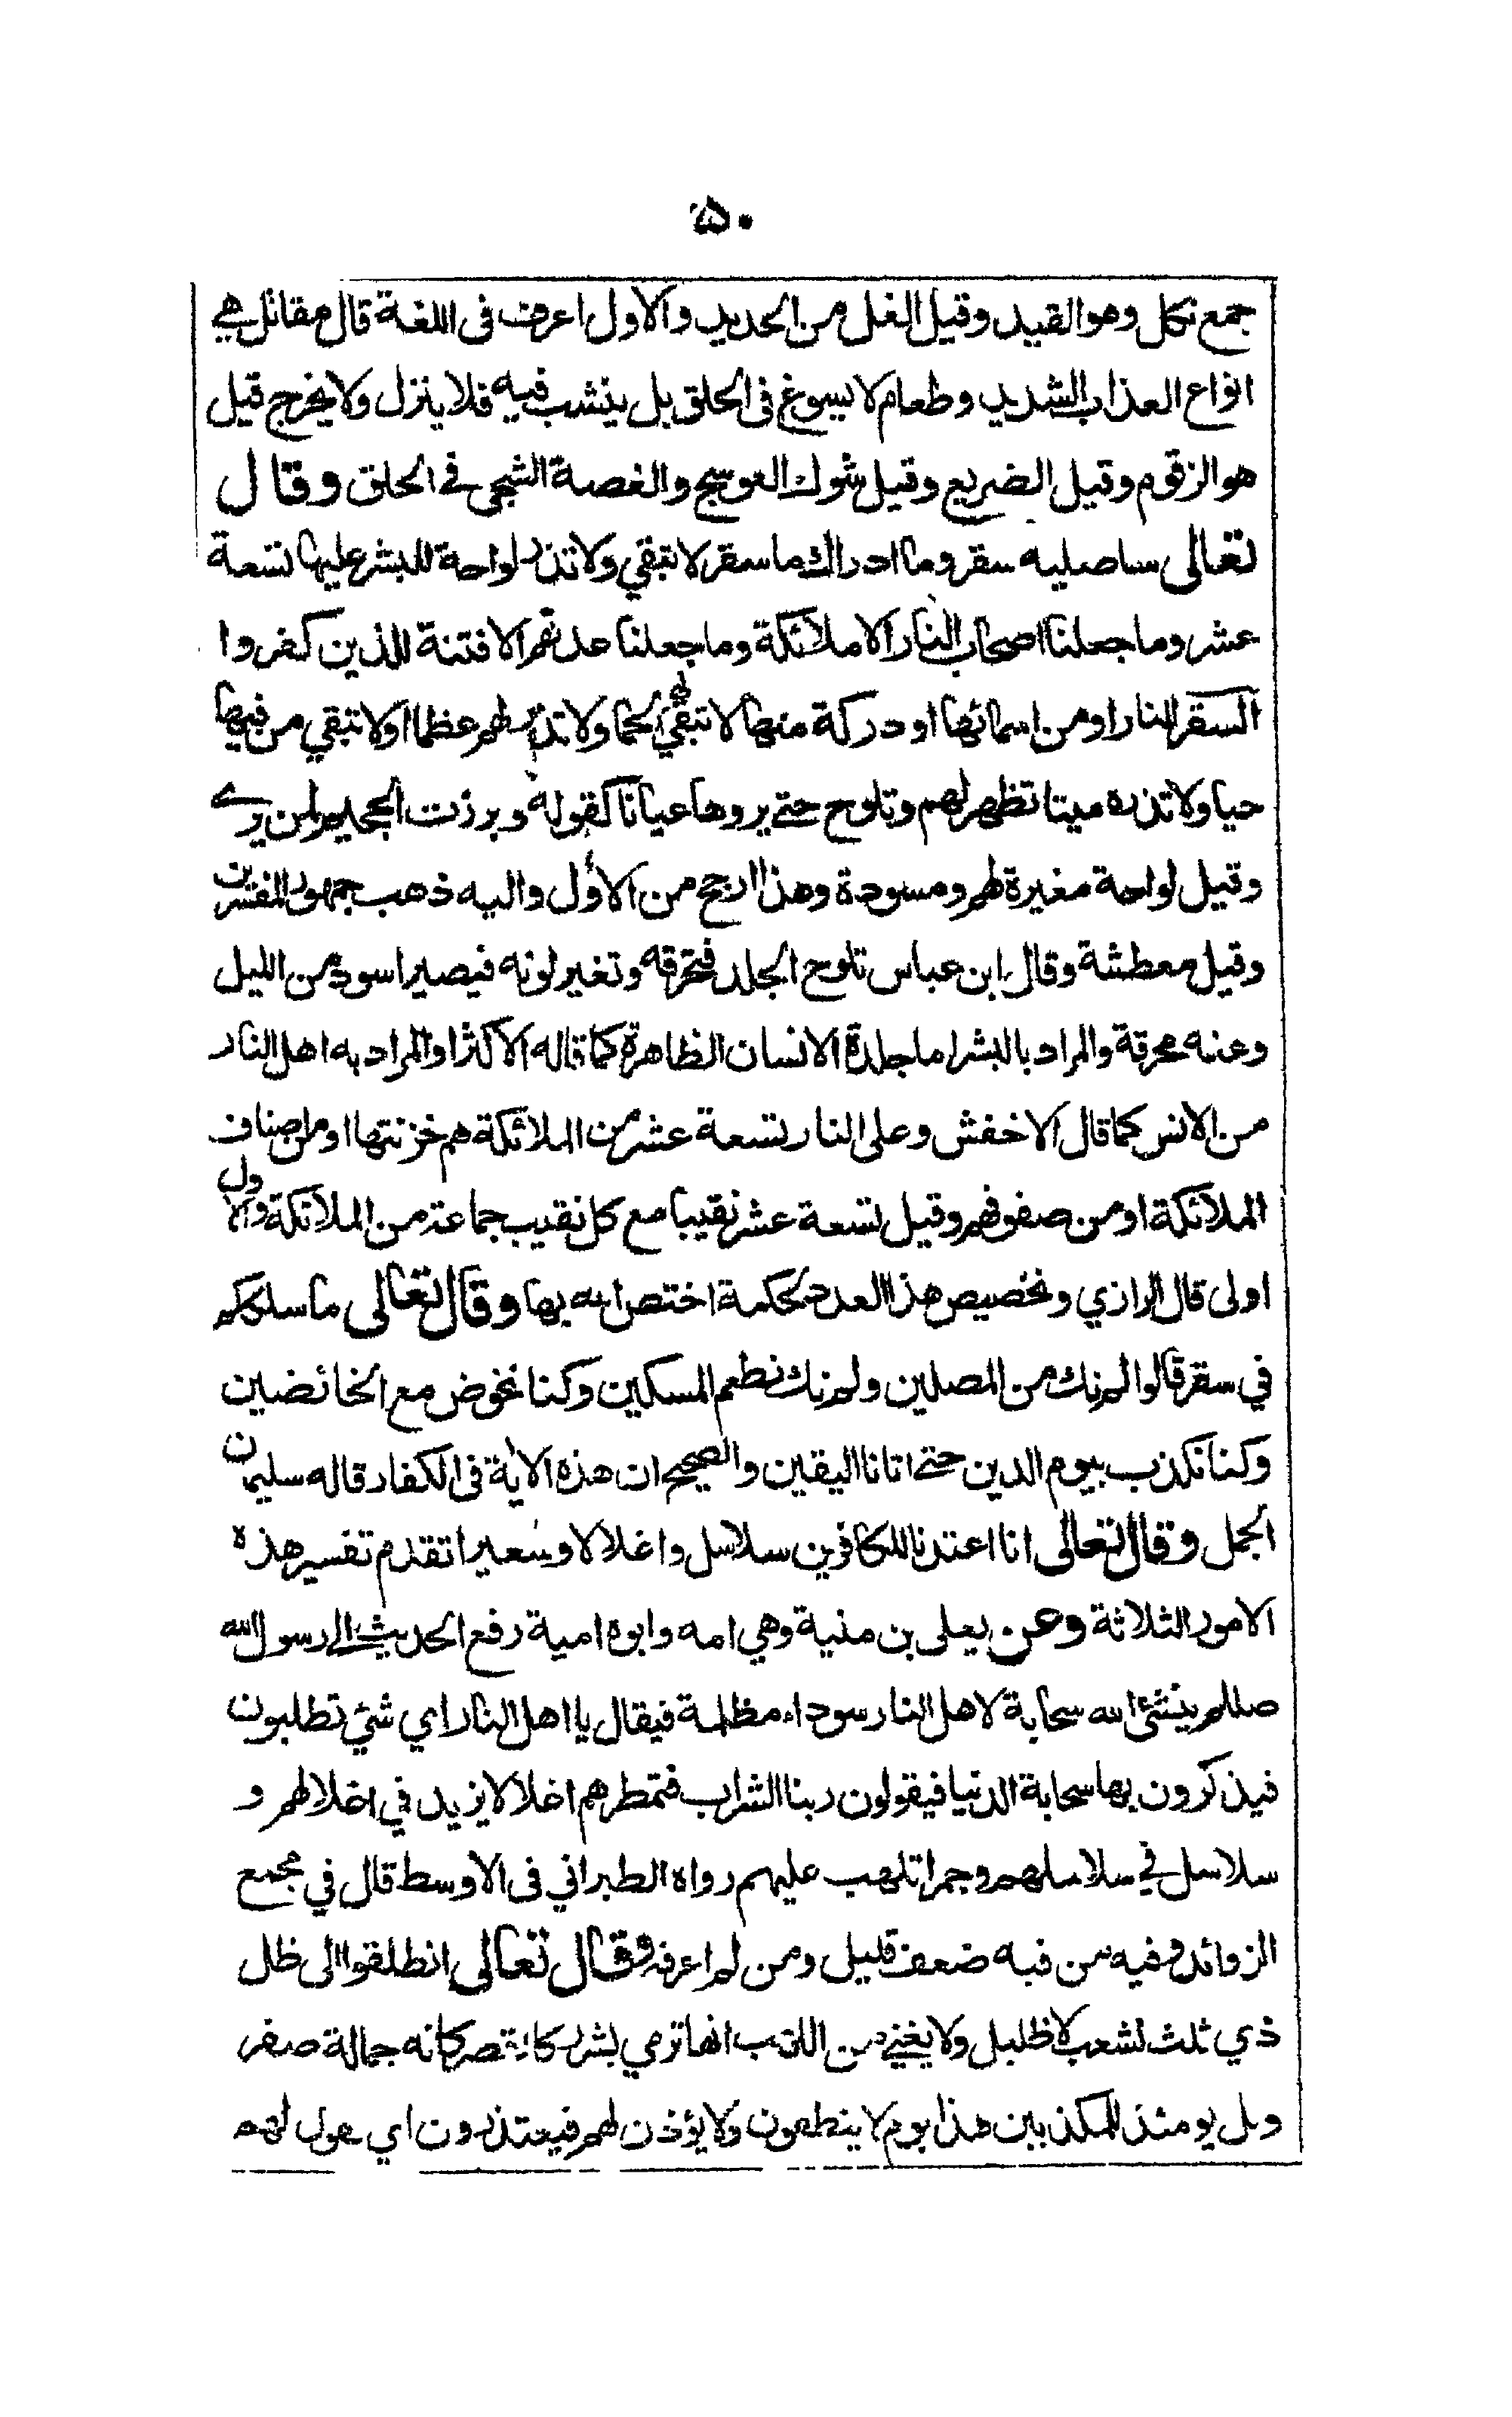 ۵۰
جمع نكل وهو القيد وقيل الغل من الحديد والاول اعرف فى اللغة قال مقاتل هي
انواع العذاب الشديد وطعام لا يسوغ فى الحلق بل ينشب فيه فلا ينزل ولا يخرج قيل
هو الزقوم وقيل الضريع وقيل شوك العوسج والغصة الشجى في الحلق وقال
تعالى ساصليه سقر وما ادراك ما سقر لا تبقي ولا تذر لواحة للبشر عليها تسعة
عشر وما جعلنا اصحاب النار الا ملائكة وما جعلنا عدتهم الا فتنة للذين كفروا
السقر النار او من اسمائها او دركة منها لا تبقي لهم لحما ولا تذر لهم عظما او لا تبقي من فيها
حيا ولا تذره ميتا تظهر لهم وتلوح حتے يروها عيانا كقوله وبرزت الجحيم لمن يرے
وقيل لواحة مغيرة لهم ومسودة وهذا ارجح من الاول واليه ذهب جمهور المفسرين
وقيل معطشة وقال ابن عباس تلوح الجلد فتحرقه وتغير لونه فيصير اسود من الليل
وعنه محرقة والمراد بالبشر اما جلدة الانسان الظاهرة كما قاله الاكثر او المراد به اهل النار
من الانس كما قال الاخفش وعلى النار تسعة عشر من الملائكة هم خزنتها او من اصناف
الملائكة او من صفوفهم وقيل تسعة عشر نقيبا مع كل نقيب جماعة من الملائكة والاول
اولى قال الرازي وتخصيص هذا العدد لحكمة اختص الله بها وقال تعالى ما سلككم
في سقر قالوا لم نك من المصلين ولم نك نطعم المسكين وكنا نخوض مع الخائضين
وكنا نكذب بيوم الدين حتے اتانا اليقين والصحيح ان هذه الاية فى الكفار قاله سليمان
الجمل وقال تعالى انا اعتدنا للكافرين سلاسل واغلالا وسعيرا تقدم تفسير هذه
الامور الثلاثة وعن يعلى بن منية وهي امه وابوه امية رفع الحديث الى رسول الله
صللم ينشئ الله سحابة لاهل النار سوداء مظلمة فيقال يا اهل النار اي شئ تطلبون
فيذكرون بها سحابة الدنيا فيقولون ربنا الشراب فتمطرهم اغلالا يزيد في اغلالهم و
سلاسل في سلاسلهم وجمرا تلهب عليهم رواه الطبراني فى الاوسط قال في مجمع
الزوائد وفيه من فيه ضعف قليل ومن لم اعرفه وقال تعالى انطلقوا الى ظل
ذي ثلث شعب لا ظليل ولا يغني من اللهب انها ترمي بشرر كالقصر كانه جمالة صفر
ويل يومئذ للمكذبين هذا يوم لا ينطقون ولا يؤذن لهم فيعتذرون اي يقول لهم